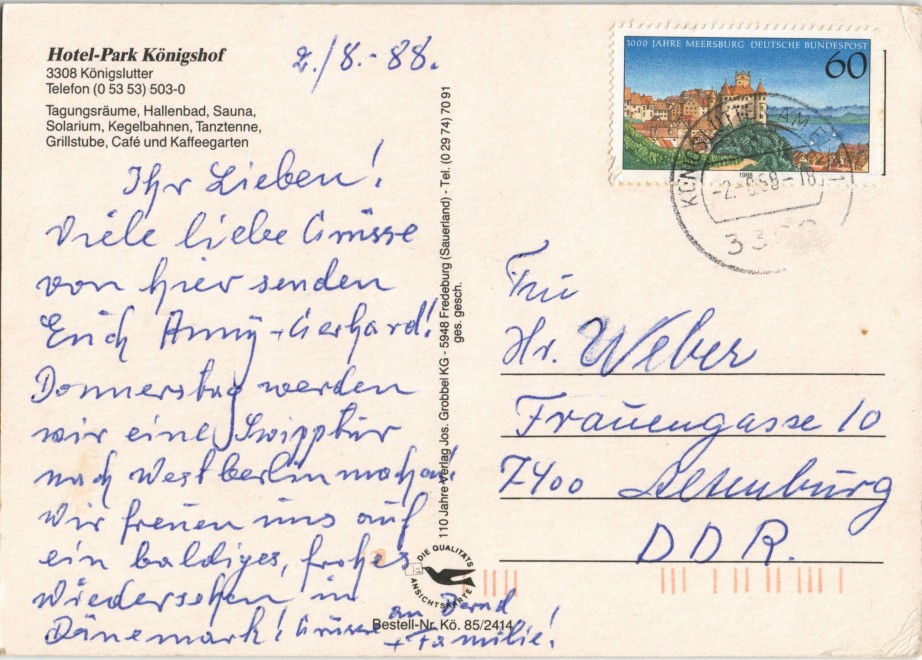 Hotel-Park Königshof
3308 Königslutter
Telefon (0 53 53) 503-0
Tagungsräume, Hallenbad, Sauna,
Solarium, Kegelbahnen, Tanztenne,
Grillstube, Café und Kaffeegarten
2./8.-88.
Ihr Lieben!
Viele liebe Grüsse
von hier senden
Erich Anny + Gerhard!
Donnerstag werden
wir eine
nach Westberlin machen!
Wir freuen uns auf
ein baldiges, frohes
Wiedersehen in
Dänemark! Grüsse an Bernd
+ Familie!
110 Jahre Verlag Jos. Grobbel KG - 5948 Fredeburg (Sauerland) - Tel. (0 29 74) 70 91
ges. gesch.
DIE QUALITÄTS
ANSICHTSKARTE
Bestell-Nr. Kö. 85/2414
1000 JAHRE MEERSBURG DEUTSCHE BUNDESPOST
60
1988
KÖNIGSLUTTER AM
-2.-8.88-18
33
Hr. Weber
Frauengasse 10
7400 Altenburg
DDR.